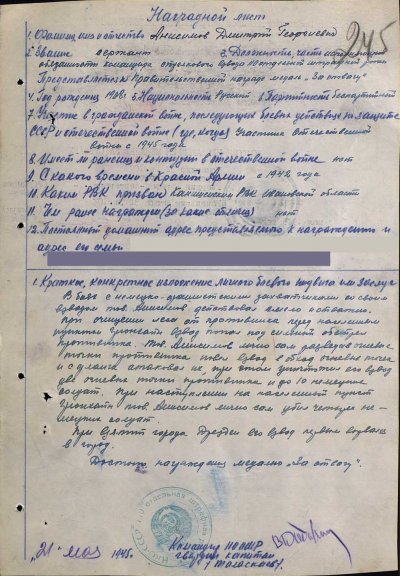 Наградной лист
245
1. Фамилия, имя и отчество Анисимов Дмитрий Георгиевич
2. Звание сержант 3. Должность, часть
обязанности командира стрелкового взвода отдельной штрафной роты
Представляется к Правительственной награде медаль "За отвагу"
4. Год рождения 1908 г. 5. Национальность Русский 6. Партийность беспартийный
7. Участие в гражданской войне, последующих боевых действиях по защите
СССР и отечественной войне (где, когда) Участник Отечественной
войны с 1945 года
8. Имеет ли ранения и контузии в отечественной войне нет
9. С какого времени в Красной Армии с 1942 года
10. Каким РВК призван РВК Ивановской области
11. Чем ранее награжден (за какие отличия) нет
12. Постоянный домашний адрес представляемого к награждению и
адрес его семьи
1. Краткое, конкретное изложение личного боевого подвига или заслуг
В боях с немецко-фашистскими захватчиками со своим
взводом тов. Анисимов действовал смело и отважно.
При очищении леса от противника перед населенным
пунктом взвод попал под сильный обстрел
противника. Тов. Анисимов лично сам разведав огневые
точки противника повел взвод в обход огневых точек
и с фланга атаковал их, при этом уничтожил его взвод
две огневые точки противника и до 10 немецких
солдат. При наступлении на населенный пункт
тов. Анисимов лично сам убил четырех не-
мецких солдат.
При взятии города Дрезден его взвод первым ворвался
в город.
Достоин награждения медалью "За отвагу".
"21" мая 1945г.
Командир
гвардии капитан